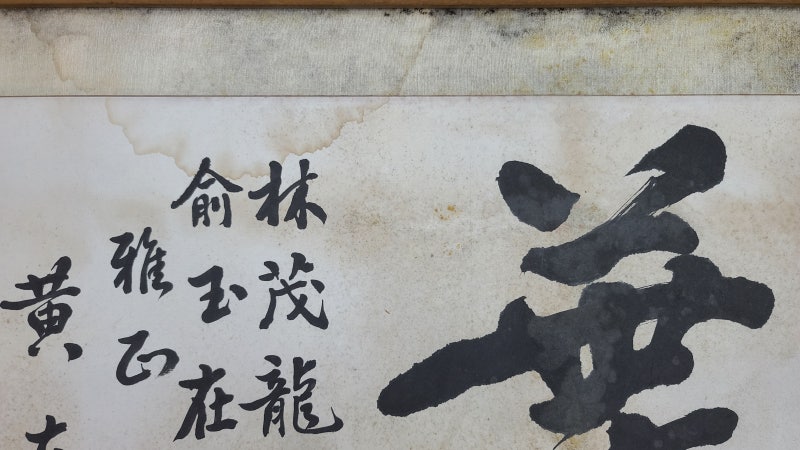 林茂龍
俞玉在
雅正
黃